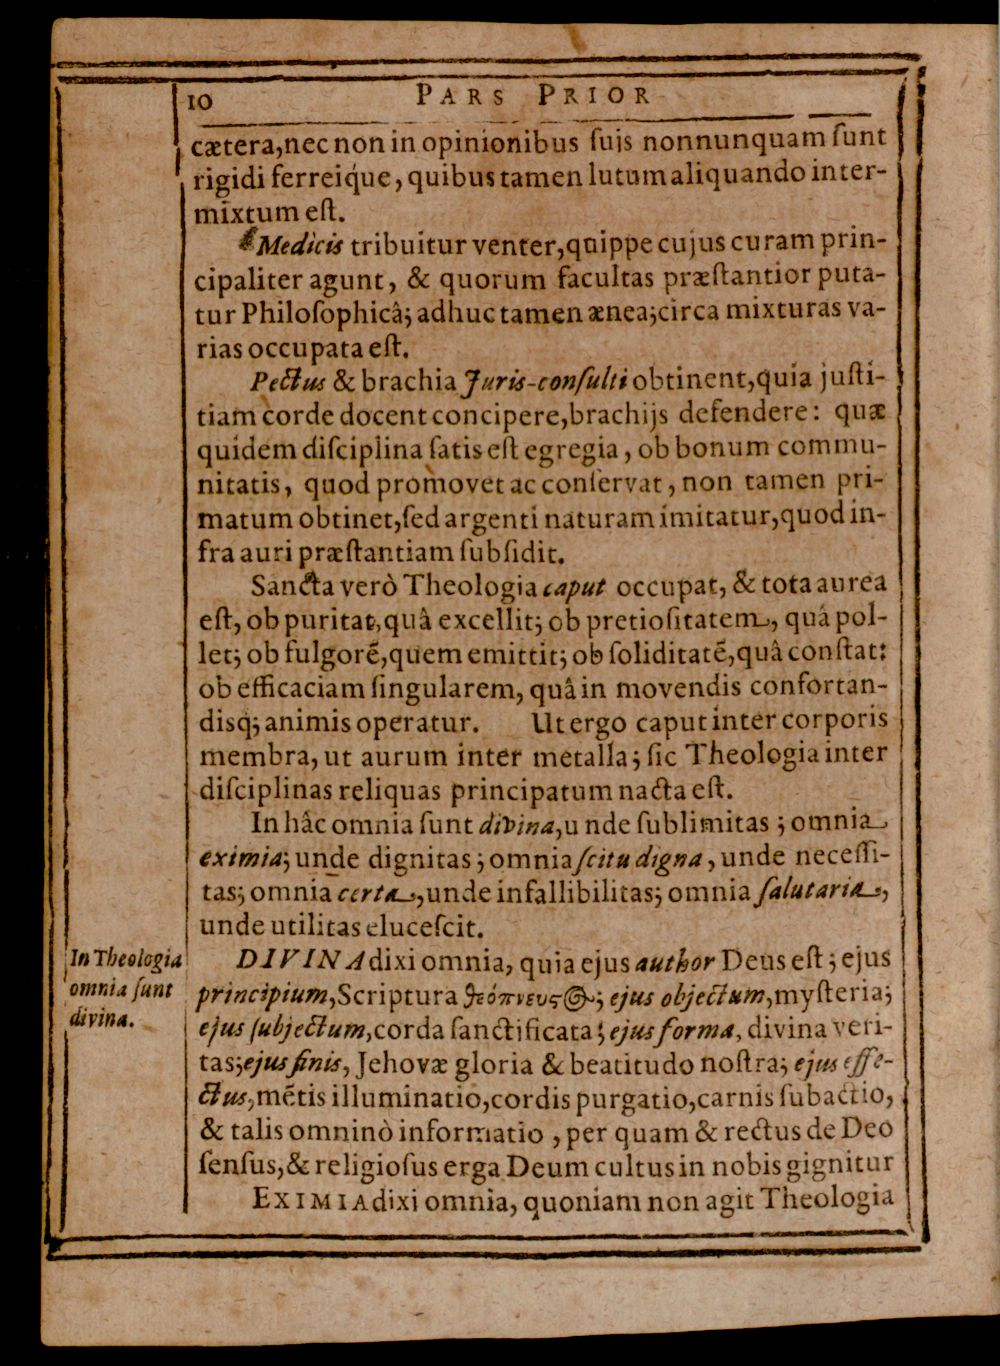 10 PARS PRIOR
cætera, nec non in opinionibus ſuis nonnunquam ſunt
rigidi ferreiq́ue, quibus tamen lutum aliquando inter-
mixtum eſt.
Medicis tribuitur venter, quippe cujus curam prin-
cipaliter agunt, & quorum facultas præſtantior puta-
tur Philoſophicâ; adhuc tamen ænea; circa mixturas va-
rias occupata eſt.
Pectus & brachia Juris-conſulti obtinent, quia juſti-
tiam corde docent concipere, brachijs defendere: quæ
quidem diſciplina ſatis eſt egregia, ob bonum commu-
nitatis, quod promovet ac conſervat, non tamen pri-
matum obtinet, ſed argenti naturam imitatur, quod in-
fra auri præſtantiam ſubſidit.
Sancta verò Theologia caput occupat, & tota aurea
eſt, ob puritat, quâ excellit; ob pretioſitatem, quâ pol-
let; ob fulgorẽ, quem emittit; ob ſoliditatẽ, quâ conſtat:
ob efficaciam ſingularem, quâ in movendis confortan-
disq; animis operatur. Ut ergo caput inter corporis
membra, ut aurum inter metalla; ſic Theologia inter
diſciplinas reliquas principatum nacta eſt.
In hâc omnia ſunt divina, u nde ſublimitas; omnia
eximia; unde dignitas; omnia ſcitu digna, unde neceſſi-
tas; omnia certa, unde infallibilitas; omnia ſalutaria,
unde utilitas eluceſcit.
In Theologia
omnia ſunt
divina.
DIVINA dixi omnia, quia ejus author Deus eſt; ejus
principium, Scriptura θεόπνευς@; ejus objectum, myſteria;
ejus ſubjectum, corda ſanctificata; ejus forma, divina veri-
tas; ejus finis, Jehovæ gloria & beatitudo noſtra; ejus effe-
ctus, mẽtis illuminatio, cordis purgatio, carnis ſubactio,
& talis omninò informatio, per quam & rectus de Deo
ſenſus, & religioſus erga Deum cultus in nobis gignitur
EXIMIA dixi omnia, quoniam non agit Theologia